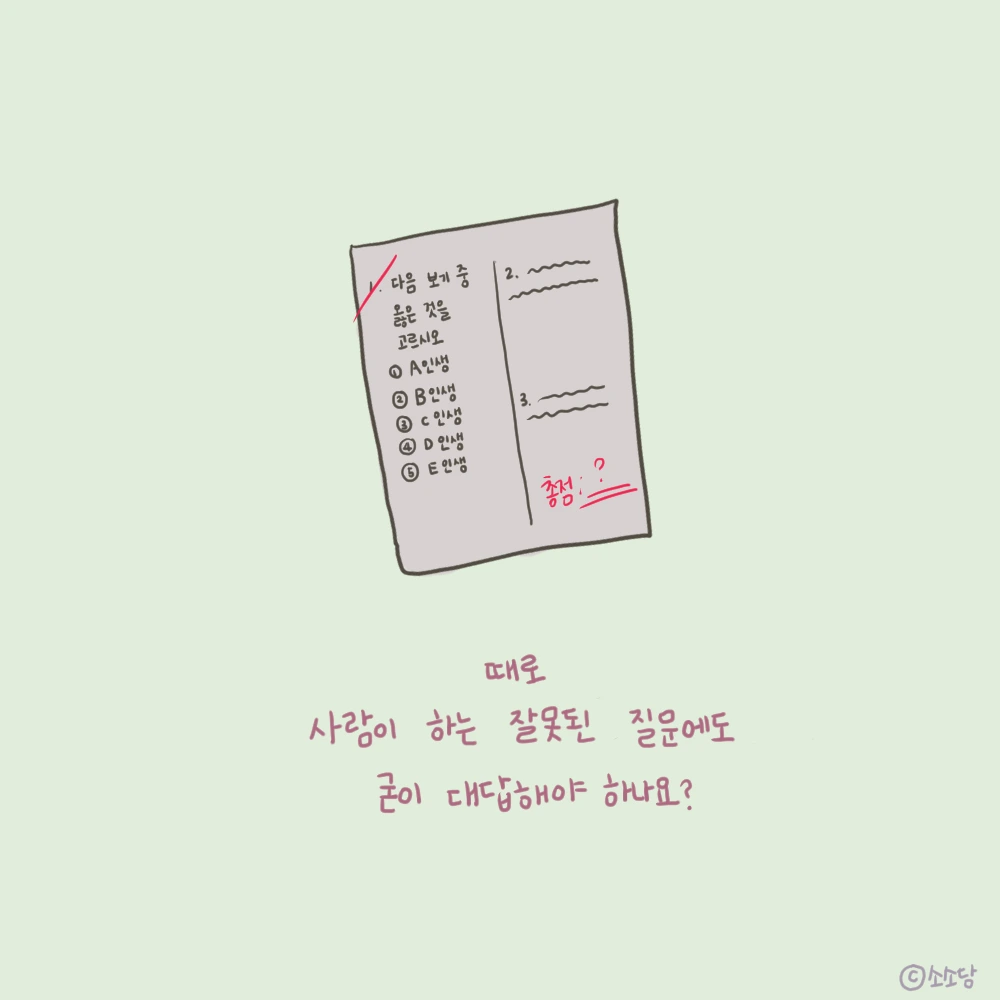 1. 다음 보기 중
옳은 것을
고르시오
① A인생
② B인생
③ C인생
④ D인생
⑤ E인생
2.
3.
총점 : ?
때로
사람이 하는 잘못된 질문에도
굳이 대답해야 하나요?
ⓒ소소담